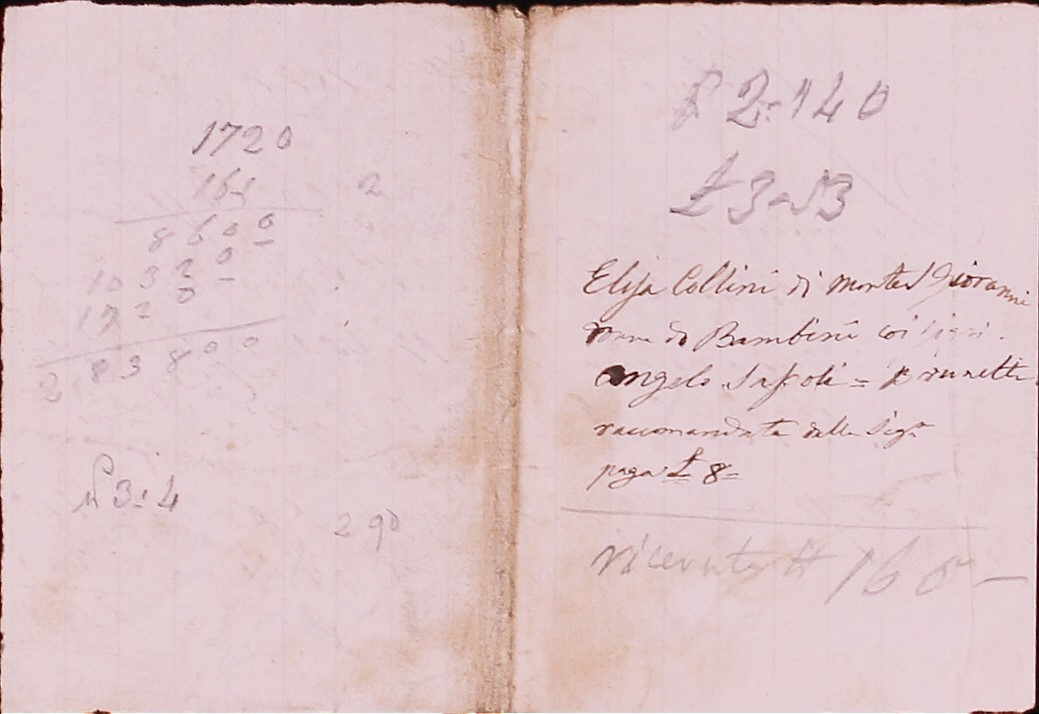 1720
165 2
8600
10320
1720
283800
N 3:4
290
£ 2:140
£ 3-53
Elisa Collini di Monte S Giovanni
da Bambini coi Sigri.
Angelo = Brunetti
raccomandata dalla Sigra
paga £ 8=
ricevuto # 160-